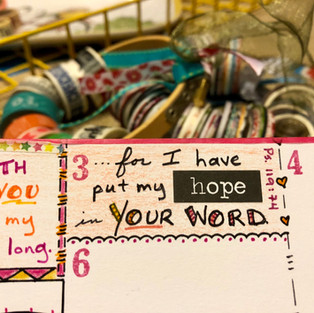 TH
YOU
my
long.
3
...for I have
put my hope
in YOUR WORD.
Ps. 119:74
4
6